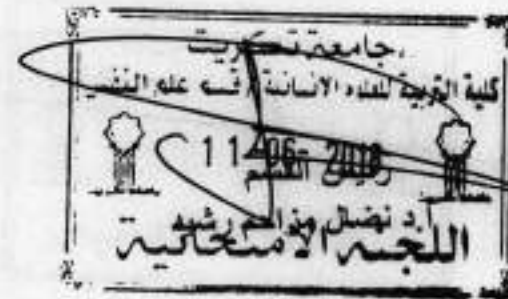 جامعة تكريت
كلية التربية للعلوم الانسانية / قسم علم النفس
11-06-2018
رئيس القسم
أ.د نضال مزاحم رشيد
اللجنة الامتحانية